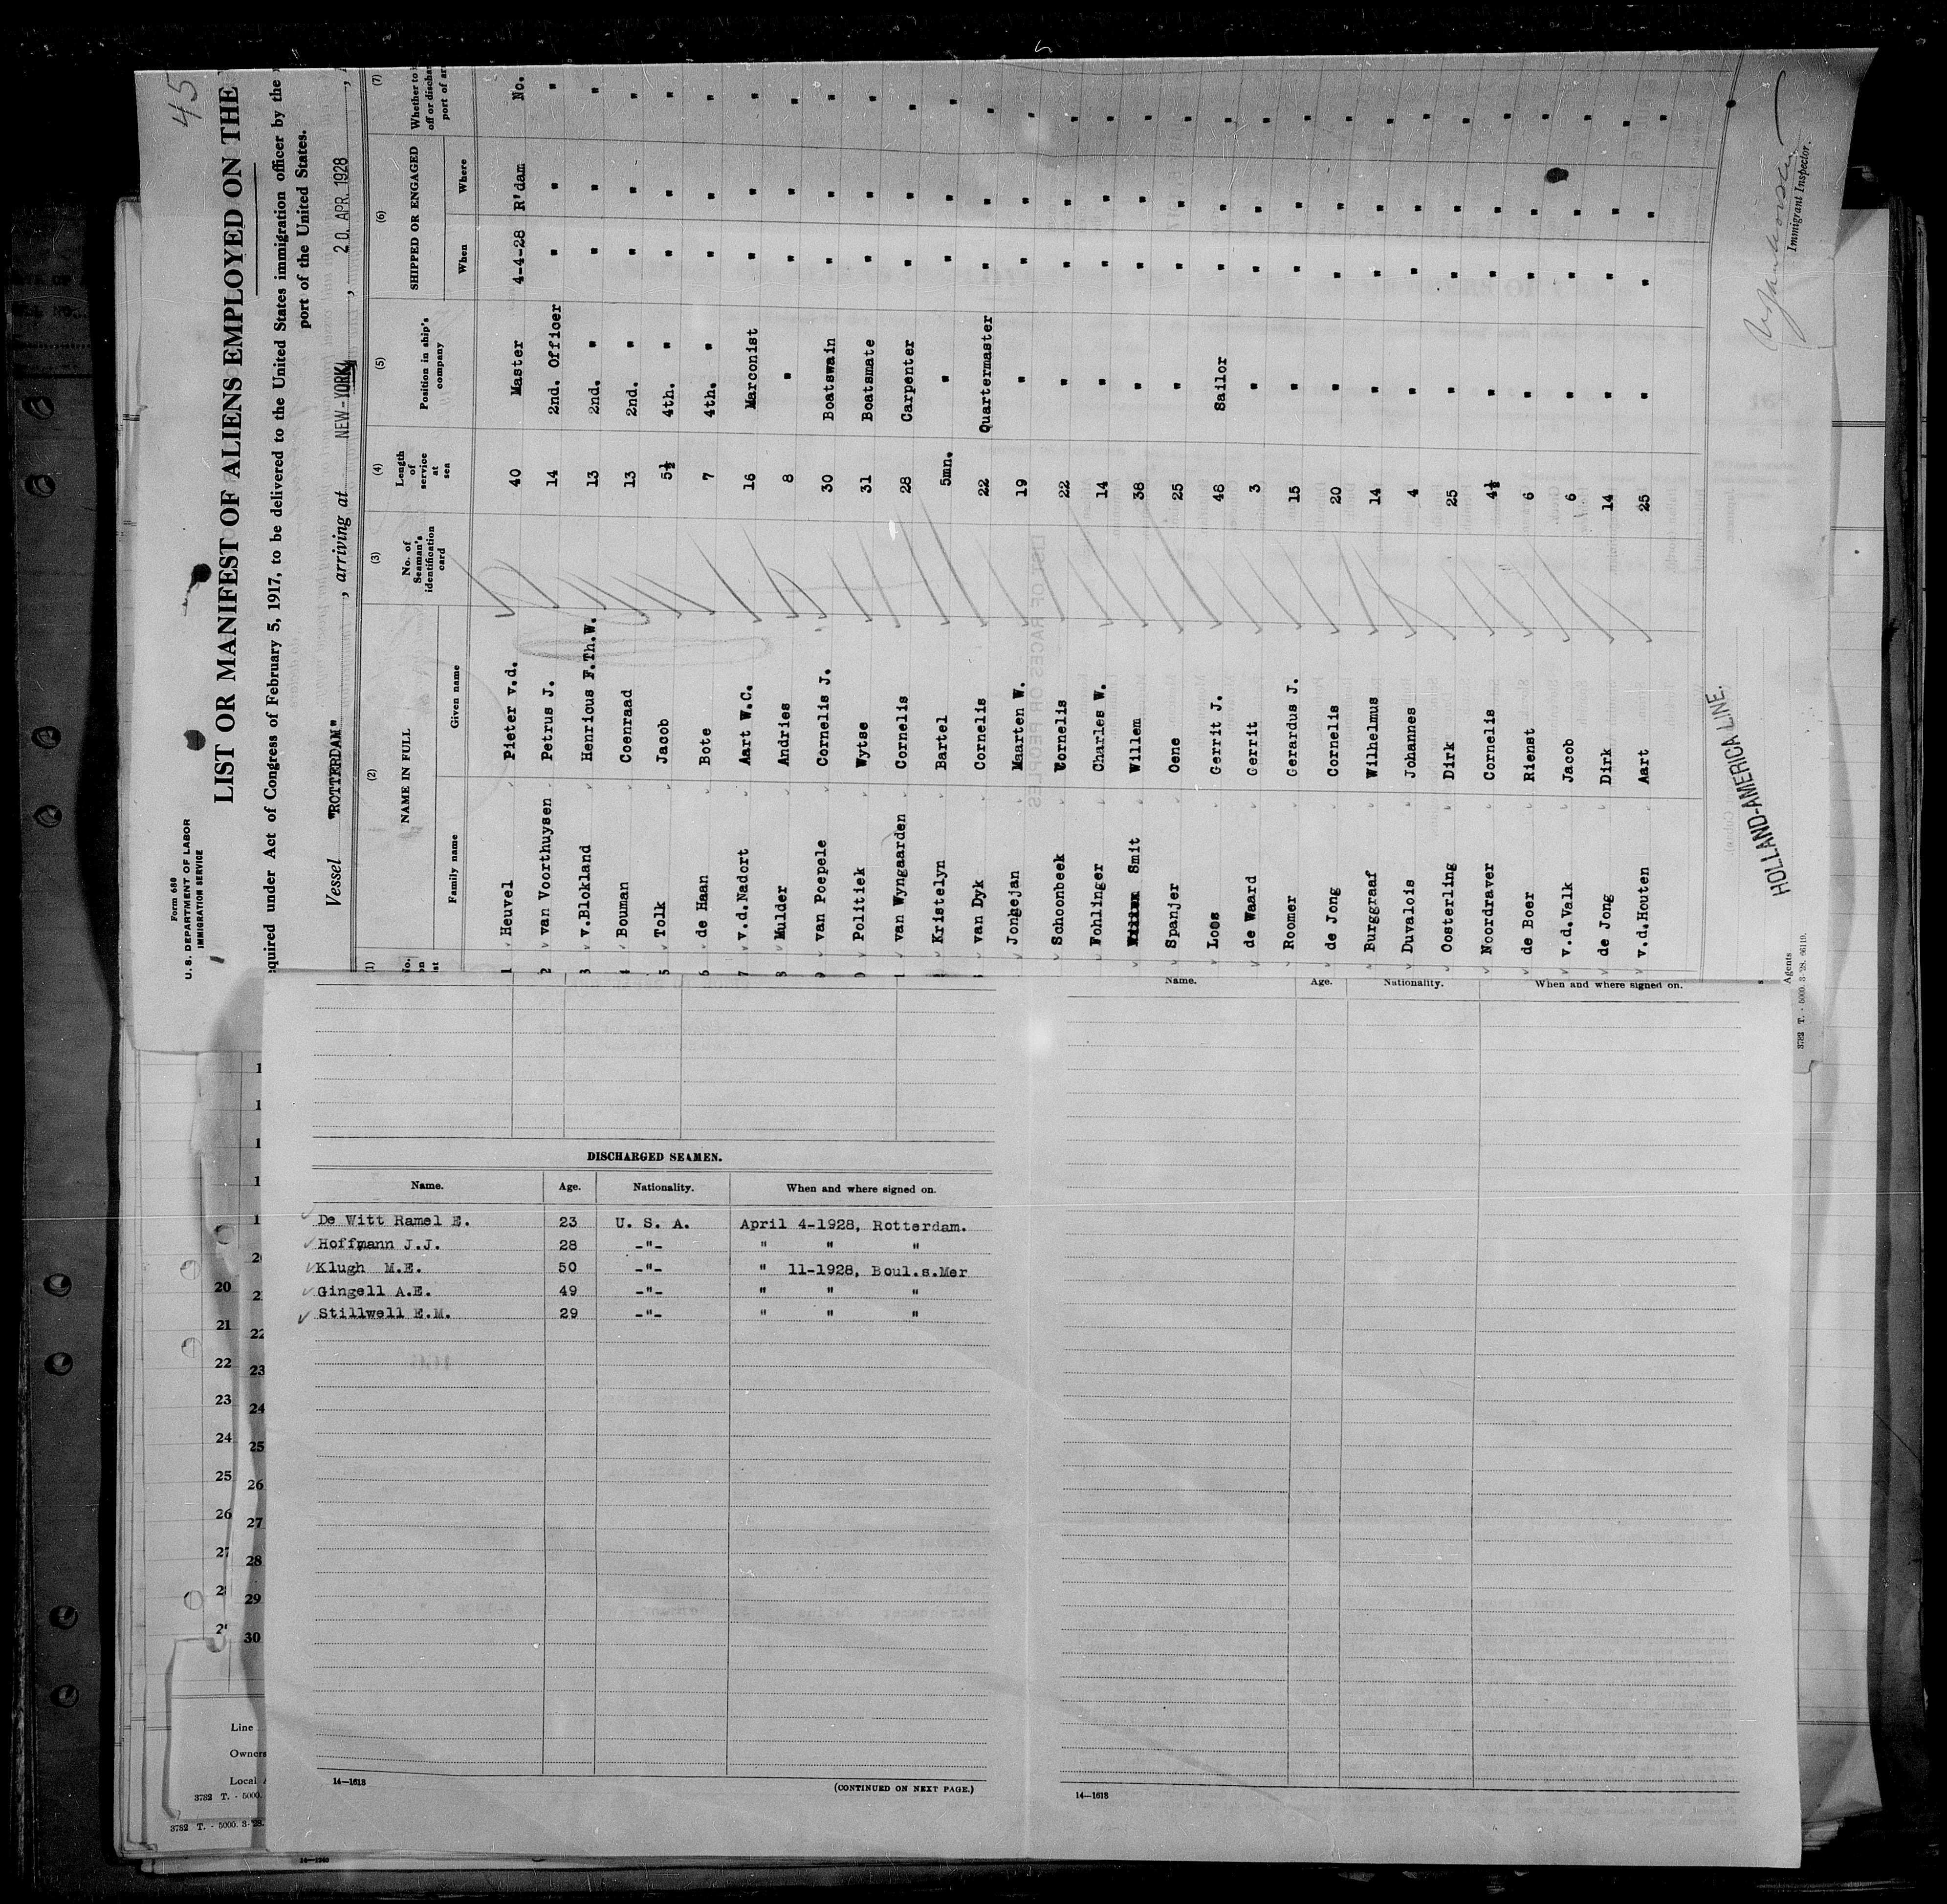 45
Form 680
U. S. DEPARTMENT OF LABOR
IMMIGRATION SERVICE
LIST OR MANIFEST OF ALIENS EMPLOYED ON THE
equired under Act of Congress of February 5, 1917, to be delivered to the United States immigration officer by the
port of the United States.
Vessel "ROTTERDAM", arriving at NEW-YORK, 20. APR. 1928,
(1) (2) (3) (4) (5) (6) (7)
NAME IN FULL
Family name Given name
No. of Seaman's identification card
Length of service at sea
Position in ship's company
SHIPPED OR ENGAGED
When Where
Whether to
off or dischar
port of ar
1 Heuvel Pieter v.d. 40 Master 4-4-28 R'dam No.
2 van Voorthuysen Petrus J. 14 2nd. Officer " " "
3 v.Blokland Henricus F.Th.W. 13 2nd. " " " "
4 Bouman Coenraad 13 2nd. " " " "
5 Tolk Jacob 5½ 4th. " " " "
6 de Haan Bote 7 4th. " " " "
7 v.d.Nadort Aart W.C. 16 Marconist " " "
8 Mulder Andries 8 " " " "
9 van Poepele Cornelis J. 30 Boatswain " " "
0 Politiek Wytse 31 Boatsmate " " "
1 van Wyngaarden Cornelis 28 Carpenter " " "
Kristelyn Bartel 5mn. " " " "
van Dyk Cornelis 22 Quartermaster " " "
Jongejan Maarten W. 19 " " " "
Schoonbeek Cornelis 22 " " " "
Fohlinger Charles W. 14 " " " "
Smit Willem 38 " " " "
Spanjer Oene 25 " " " "
Loos Gerrit J. 46 Sailor " " "
de Waard Gerrit 3 " " " "
Roomer Gerardus J. 15 " " " "
de Jong Cornelis 20 " " " "
Burggraaf Wilhelmus 14 " " " "
Duvalois Johannes 4 " " " "
Oosterling Dirk 25 " " " "
Noordraver Cornelis 4½ " " " "
de Boer Rienst 6 " " " "
v.d.Valk Jacob 6 " " " "
de Jong Dirk 14 " " " "
v.d.Houten Aart 25 " " " "
HOLLAND-AMERICA LINE,
Agents
Immigrant Inspector.
3782 T. - 5000. 3-'28. 66119.
DISCHARGED SEAMEN.
Name. Age. Nationality. When and where signed on.
De Witt Ramel E. 23 U. S. A. April 4-1928, Rotterdam.
Hoffmann J.J. 28 -"- " " "
Klugh M.E. 50 -"- " 11-1928, Boul.s.Mer
Gingell A.E. 49 -"- " " "
Stillwell E.M. 29 -"- " " "
14—1618
(CONTINUED ON NEXT PAGE.)
Name. Age. Nationality. When and where signed on.
14—1618
20
21
22
23
24
25
26
22
23
24
25
26
27
28
29
30
Line
Owners
Local
3782 T. - 5000.
3782 T. - 5000. 3-'28.